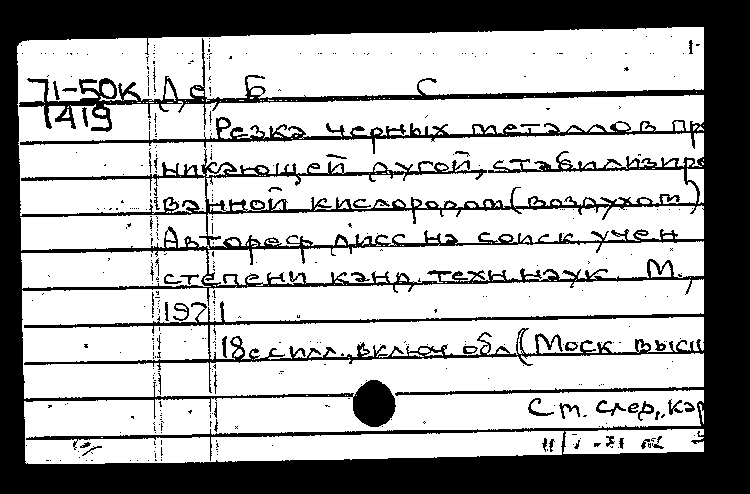 71-50к Де, Б С
1419
Резка черных металлов про
никающей дугой, стабилизиро
ванной кислородом (воздухом)
Автореф дисс на соиск учен
степени канд техн. наук М.,
1971
18с с илл., включ. обл (Моск высш
Ст. след, кар